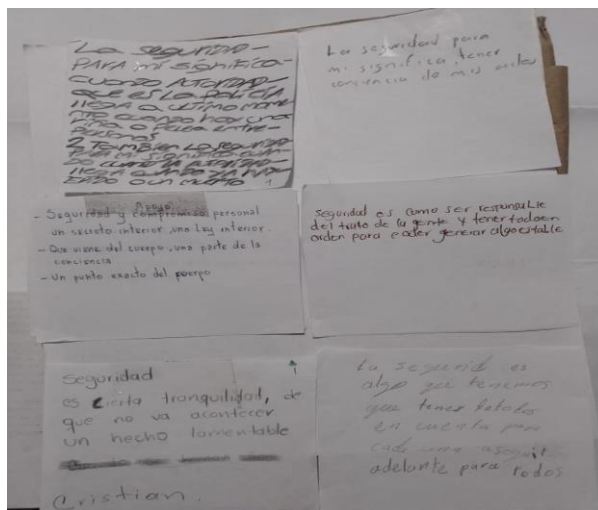 La seguridad-
PARA mi significa-
cuando AUTORIDAD-
que es LA POLICIA
llega a ultimo mome
nto cuando hay una
riña o pelea entre-
personas
2 También la seguridad
PARA mi significa cuan
do cuando la autoridad-
llega cuando ya hay
o un muerto 1
La seguridad para
mi significa, tener
conciencia de mis actos
Apoyo
- Seguridad y compromiso personal
un secreto interior, una Ley interior.
- Que viene del cuerpo, una parte de la
conciencia
- Un punto exacto del puerpo
Seguridad es como ser responsable
del trato de la gente y tener todo en
orden para poder generar algo estable
Seguridad
es cierta tranquilidad, de
que no va acontecer
un hecho lamentable
Cristian.
La segurid es
algo que tenemos
que tener
en cuenta para
cada uno
adelante para todos